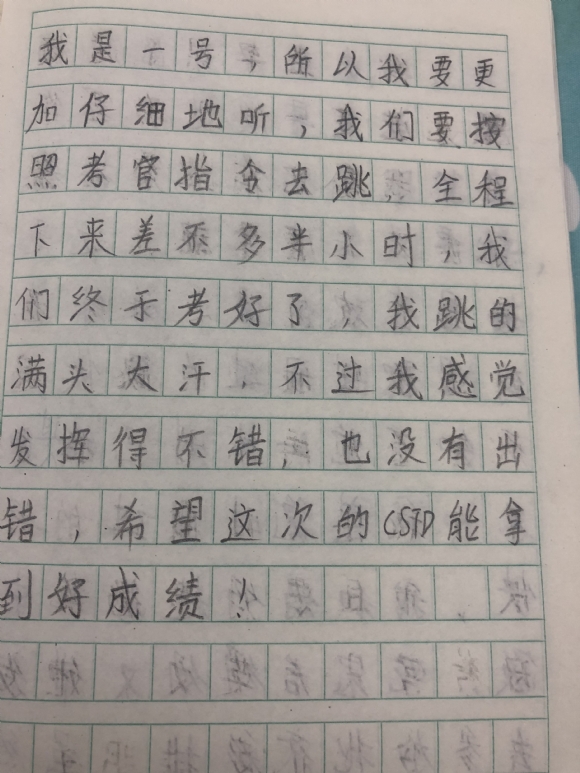 我是一号，所以我要更
加仔细地听，我们要按
照考官指令去跳，全程
下来差不多半小时，我
们终于考好了，我跳的
满头大汗，不过我感觉
发挥得不错，也没有出
错，希望这次的CSTD能拿
到好成绩！